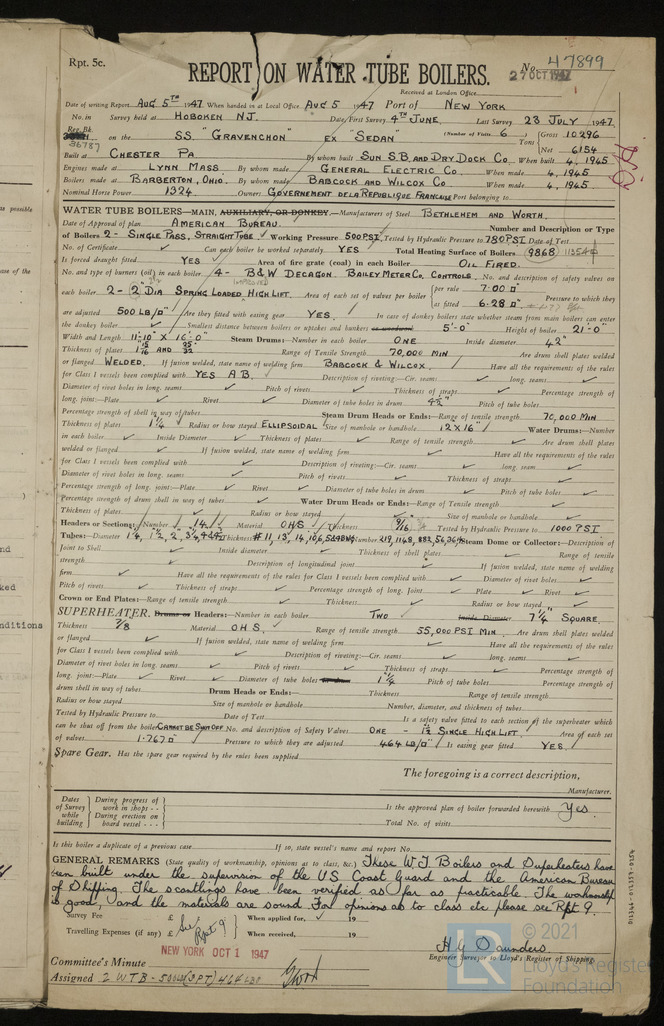 Rpt. 5c.
No. 47899
REPORT ON WATER TUBE BOILERS.
27 OCT 1947
Received at London Office
Date of writing Report Aug 5TH 1947 When handed in at Local Office Aug 5 1947 Port of NEW YORK
No. in Reg. Bk. Survey held at HOBOKEN N.J. Date, First Survey 4TH JUNE, Last Survey 23 JULY 1947
36787 on the SS. "GRAVENCHON" EX "SEDAN" (Number of Visits 6) Tons { Gross 10296 Net 6154
Built at CHESTER PA By whom built SUN S.B. AND DRY DOCK CO. When built 4, 1945
Engines made at LYNN MASS. By whom made GENERAL ELECTRIC CO. When made 4, 1945
Boilers made at BARBERTON, OHIO. By whom made BABCOCK AND WILCOX CO When made 4, 1945
Nominal Horse Power 1324. Owners GOVERNEMENT DE LA REPUBLIQUE FRANCAISE Port belonging to
WATER TUBE BOILERS—MAIN, AUXILIARY, OR DONKEY.—Manufacturers of Steel BETHLEHEM AND WORTH.
Date of Approval of plan AMERICAN BUREAU. Number and Description or Type
of Boilers 2 - SINGLE PASS, STRAIGHT TUBE Working Pressure 500 PSI Tested by Hydraulic Pressure to 780 PSI Date of Test
No. of Certificate Can each boiler be worked separately YES Total Heating Surface of Boilers 9868
Is forced draught fitted YES Area of fire grate (coal) in each Boiler OIL FIRED.
No. and type of burners (oil) in each boiler 4 - B&W DECAGON BAILEY METER CO. CONTROLS. No. and description of safety valves on
each boiler 2 - 2" DIA SPRING LOADED HIGH LIFT. Area of each set of valves per boiler { per rule 7.00 □" as fitted 6.28 □" Pressure to which they
are adjusted 500 LB/□" Are they fitted with easing gear YES. In case of donkey boilers state whether steam from main boilers can enter
the donkey boiler Smallest distance between boilers or uptakes and bunkers or woodwork 5'-0" Height of boiler 21'-0"
Width and Length 11'-10" X 16'-0" Steam Drums:—Number in each boiler ONE Inside diameter 42"
Thickness of plates 1 15/16 AND 25/32 Range of Tensile Strength 70,000 MIN Are drum shell plates welded
or flanged WELDED. If fusion welded, state name of welding firm BABCOCK & WILCOX. Have all the requirements of the rules
for Class I vessels been complied with YES A.B. Description of riveting:—Cir. seams long. seams
Diameter of rivet holes in long. seams Pitch of rivets Thickness of straps Percentage strength of
long. joint:—Plate Rivet Diameter of tube holes in drum 4½" Pitch of tube holes
Percentage strength of shell in way of tubes Steam Drum Heads or Ends:—Range of tensile strength 70,000 MIN
Thickness of plates 1¼" Radius or how stayed ELLIPSOIDAL Size of manhole or handhole 12 X 16" Water Drums:—Number
in each boiler Inside Diameter Thickness of plates Range of tensile strength Are drum shell plates
welded or flanged If fusion welded, state name of welding firm Have all the requirements of the rules
for Class I vessels been complied with Description of riveting:—Cir. seams long. seam
Diameter of rivet holes in long. seams Pitch of rivets Thickness of straps
Percentage strength of long. joint:—Plate Rivet Diameter of tube holes in drum Pitch of tube holes
Percentage strength of drum shell in way of tubes Water Drum Heads or Ends:—Range of Tensile strength
Thickness of plates Radius or how stayed Size of manhole or handhole
Headers or Sections:—Number 14 Material O.H.S. Thickness 9/16 Tested by Hydraulic Pressure to 1000 PSI
Tubes:—Diameter Thickness Number Steam Dome or Collector:—Description of
Joint to Shell Inside diameter Thickness of shell plates Range of tensile
strength Description of longitudinal joint If fusion welded, state name of welding
firm Have all the requirements of the rules for Class I vessels been complied with Diameter of rivet holes
Pitch of rivets Thickness of straps Percentage strength of long. joint Plate Rivet
Crown or End Plates:—Range of tensile strength Thickness Radius or how stayed
SUPERHEATER. Drums or Headers:—Number in each boiler TWO Inside Diameter 7¼" SQUARE.
Thickness 7/8 Material O.H.S. Range of tensile strength 55,000 PSI MIN. Are drum shell plates welded
or flanged If fusion welded, state name of welding firm Have all the requirements of the rules
for Class I vessels been complied with Description of riveting:—Cir. seams long. seams
Diameter of rivet holes in long. seams Pitch of rivets Thickness of straps Percentage strength of
long. joint:—Plate Rivet Diameter of tube holes in drum 1¼" Pitch of tube holes Percentage strength of
drum shell in way of tubes Drum Heads or Ends:— Thickness Range of tensile strength
Radius or how stayed Size of manhole or handhole Number, diameter, and thickness of tubes
Tested by Hydraulic Pressure to Date of Test Is a safety valve fitted to each section of the superheater which
can be shut off from the boiler CANNOT BE SHUT OFF No. and description of Safety Valves ONE - 1½ SINGLE HIGH LIFT. Area of each set
of valves 1.767 □" Pressure to which they are adjusted 464 LB/□" Is easing gear fitted YES.
Spare Gear. Has the spare gear required by the rules been supplied
The foregoing is a correct description,
Manufacturer.
Dates of Survey while building { During progress of work in shops - - During erection on board vessel - - - } Is the approved plan of boiler forwarded herewith Yes.
Total No. of visits
Is this boiler a duplicate of a previous case If so, state vessel's name and report No.
GENERAL REMARKS (State quality of workmanship, opinions as to class, &c.) These W.T. Boilers and Superheaters have
been built under the supervision of the US Coast Guard and the American Bureau
of Shipping. The scantlings have been verified as far as practicable. The workmanship
is good, and the materials are sound. For opinions as to class etc please see Rpt 9.
Survey Fee £ See Rpt 9 When applied for, 19
Travelling Expenses (if any) £ When received, 19
NEW YORK OCT 1 1947
H.G. Saunders
Engineer Surveyor to Lloyd's Register of Shipping.
Committee's Minute
Assigned 2 WTB - 500 lb (SPT) 464 lb
© 2021
LR
Lloyd's Register
Foundation